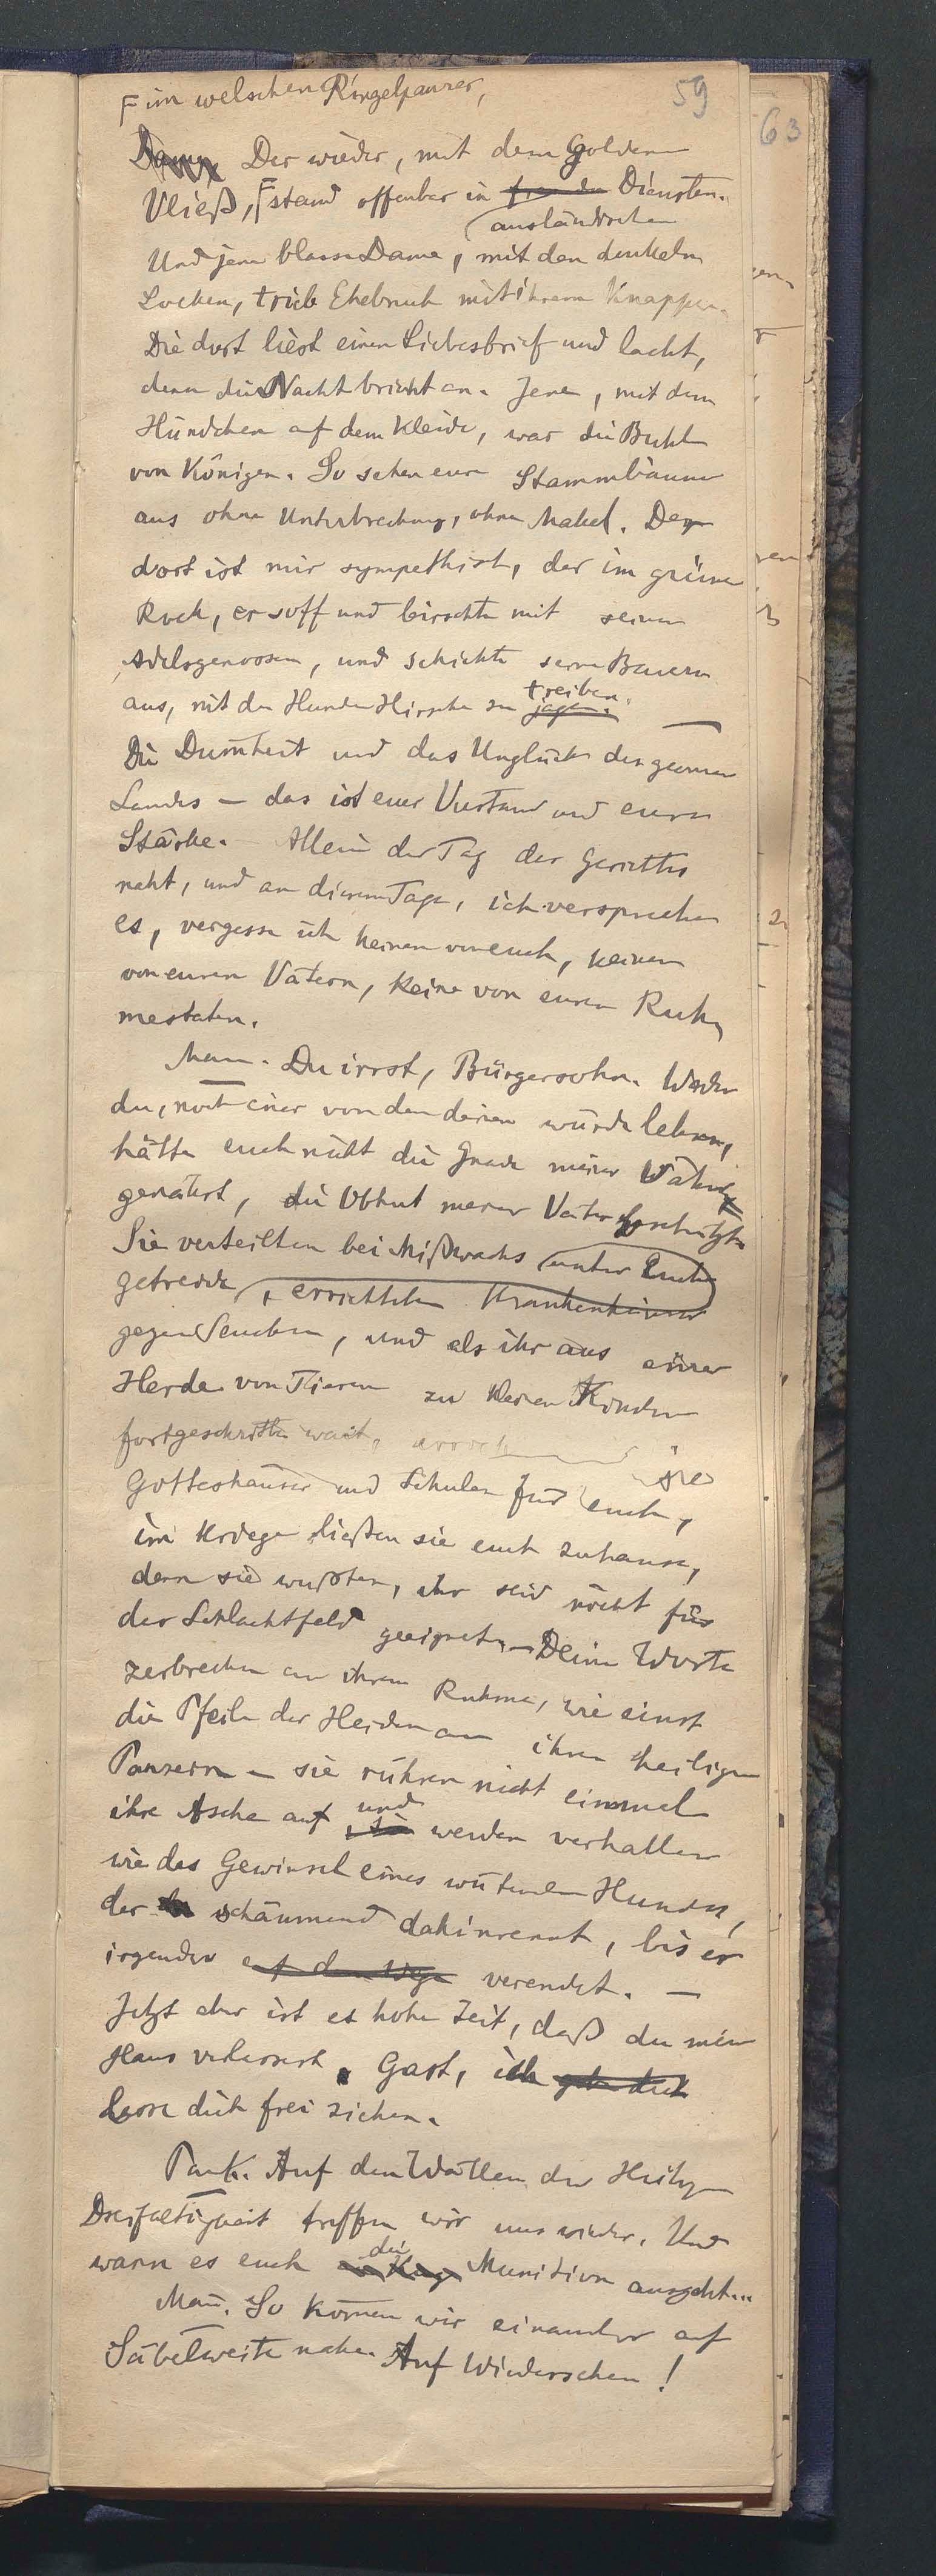 59
63
F im welschen Ringelpanzer,
Der wieder, mit dem Goldenen
Vließ, F stand offenbar in fremden Diensten.
ausländischen
Und jene blasse Dame, mit den dunkeln
Locken, trieb Ehebruch mit ihrem Knappen.
Die dort liest einen Liebesbrief und lacht,
denn die Nacht bricht an. Jene, mit dem
Hündchen auf dem Kleide, war die Buhle
von Königen. So sehen eure Stammbäume
aus ohne Unterbrechung, ohne Makel. Der
dort ist mir sympathisch, der im grünen
Rock, er soff und birschte mit seinen
Adelsgenossen, und schickte seine Bauern
treiben.
aus, mit den Hunden Hirsche zu jagen.
Die Dummheit und das Unglück des ganzen
Landes – das ist euer Verstand und eure
Stärke. Allein der Tag des Gerichtes
naht, und an diesem Tage, ich verspreche
es, vergesse ich keinen von euch, keinen
von euren Vätern, keine von euren Ruh
mestaten.
Mann. Du irrst, Bürgersohn. Weder
du, noch einer von den deinen würde leben,
hätte euch nicht die Gnade meiner Väter
genährt, die Obhut meiner Väter beschützt.
Sie verteilten bei Mißwachs unter Euch
getreide, errichteten Krankenhäuser
gegen Seuchen, und als ihr aus einer
Herde von Tieren zu kleinen Kindern
fortgeschritten wart, sie
Gotteshäuser und Schulen für euch,
im Kriege ließen sie euch zuhause,
denn sie wußten, ihr seid nicht für
das Schlachtfeld geeignet. – Deine Worte
zerbrechen an ihrem Ruhme, wie einst
die Pfeile der Heiden an ihren heiligen
Panzern – sie rühren nicht einmal
und
ihre Asche auf werden verhallen
wie das Gewinsel eines wütenden Hundes,
der schäumend dahinrennt, bis er
irgendwo auf dem Wege verendet. –
Jetzt aber ist es hohe Zeit, daß du mein
Haus verlassest. Gast, ich gebe dich
lasse dich frei ziehen.
Pank. Auf den Wällen der Heiligen
Dreifaltigkeit treffen wir uns wieder. Und
die
wann es euch Munition ausgeht...
Mann. So kommen wir einander auf
Säbelweite nahe. Auf Wiedersehen!